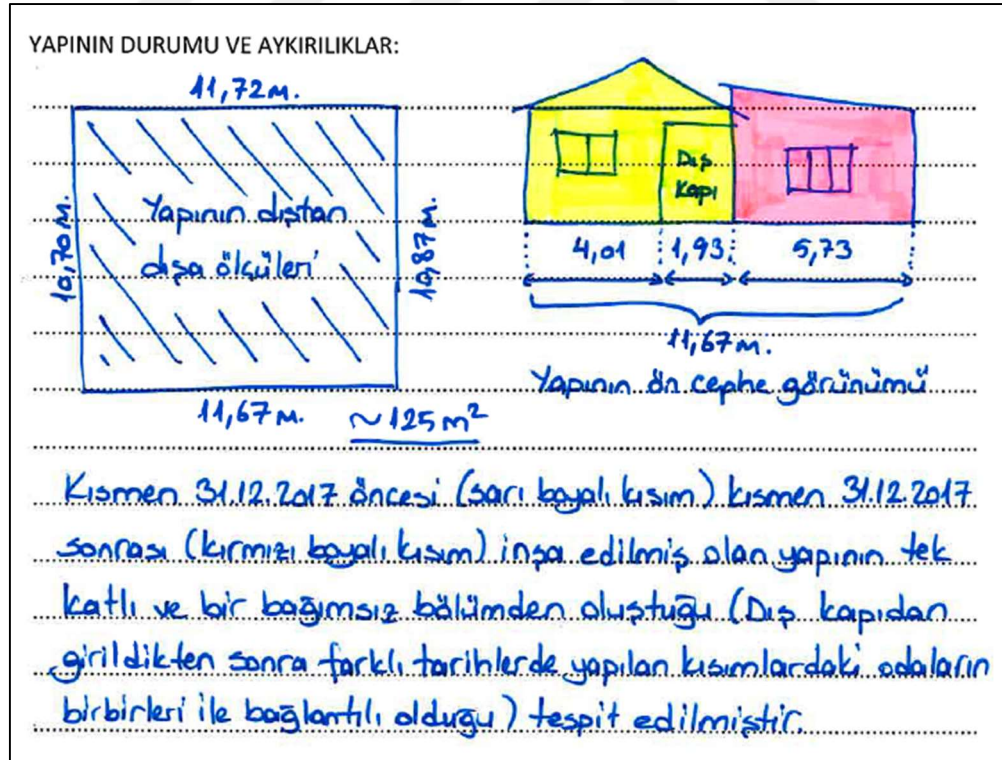 YAPININ DURUMU VE AYKIRILIKLAR:
11,72 m.
10,70 m.
Yapının dıştan
dışa ölçüleri
10,87 m.
11,67 m.
~125 m²
Dış
Kapı
4,01 1,93 5,73
11,67 m.
Yapının ön cephe görünümü
Kısmen 31.12.2017 öncesi (sarı boyalı kısım) kısmen 31.12.2017
sonrası (kırmızı boyalı kısım) inşa edilmiş olan yapının tek
katlı ve bir bağımsız bölümden oluştuğu (Dış kapıdan
girildikten sonra farklı tarihlerde yapılan kısımlardaki odaların
birbirleri ile bağlantılı olduğu) tespit edilmiştir.